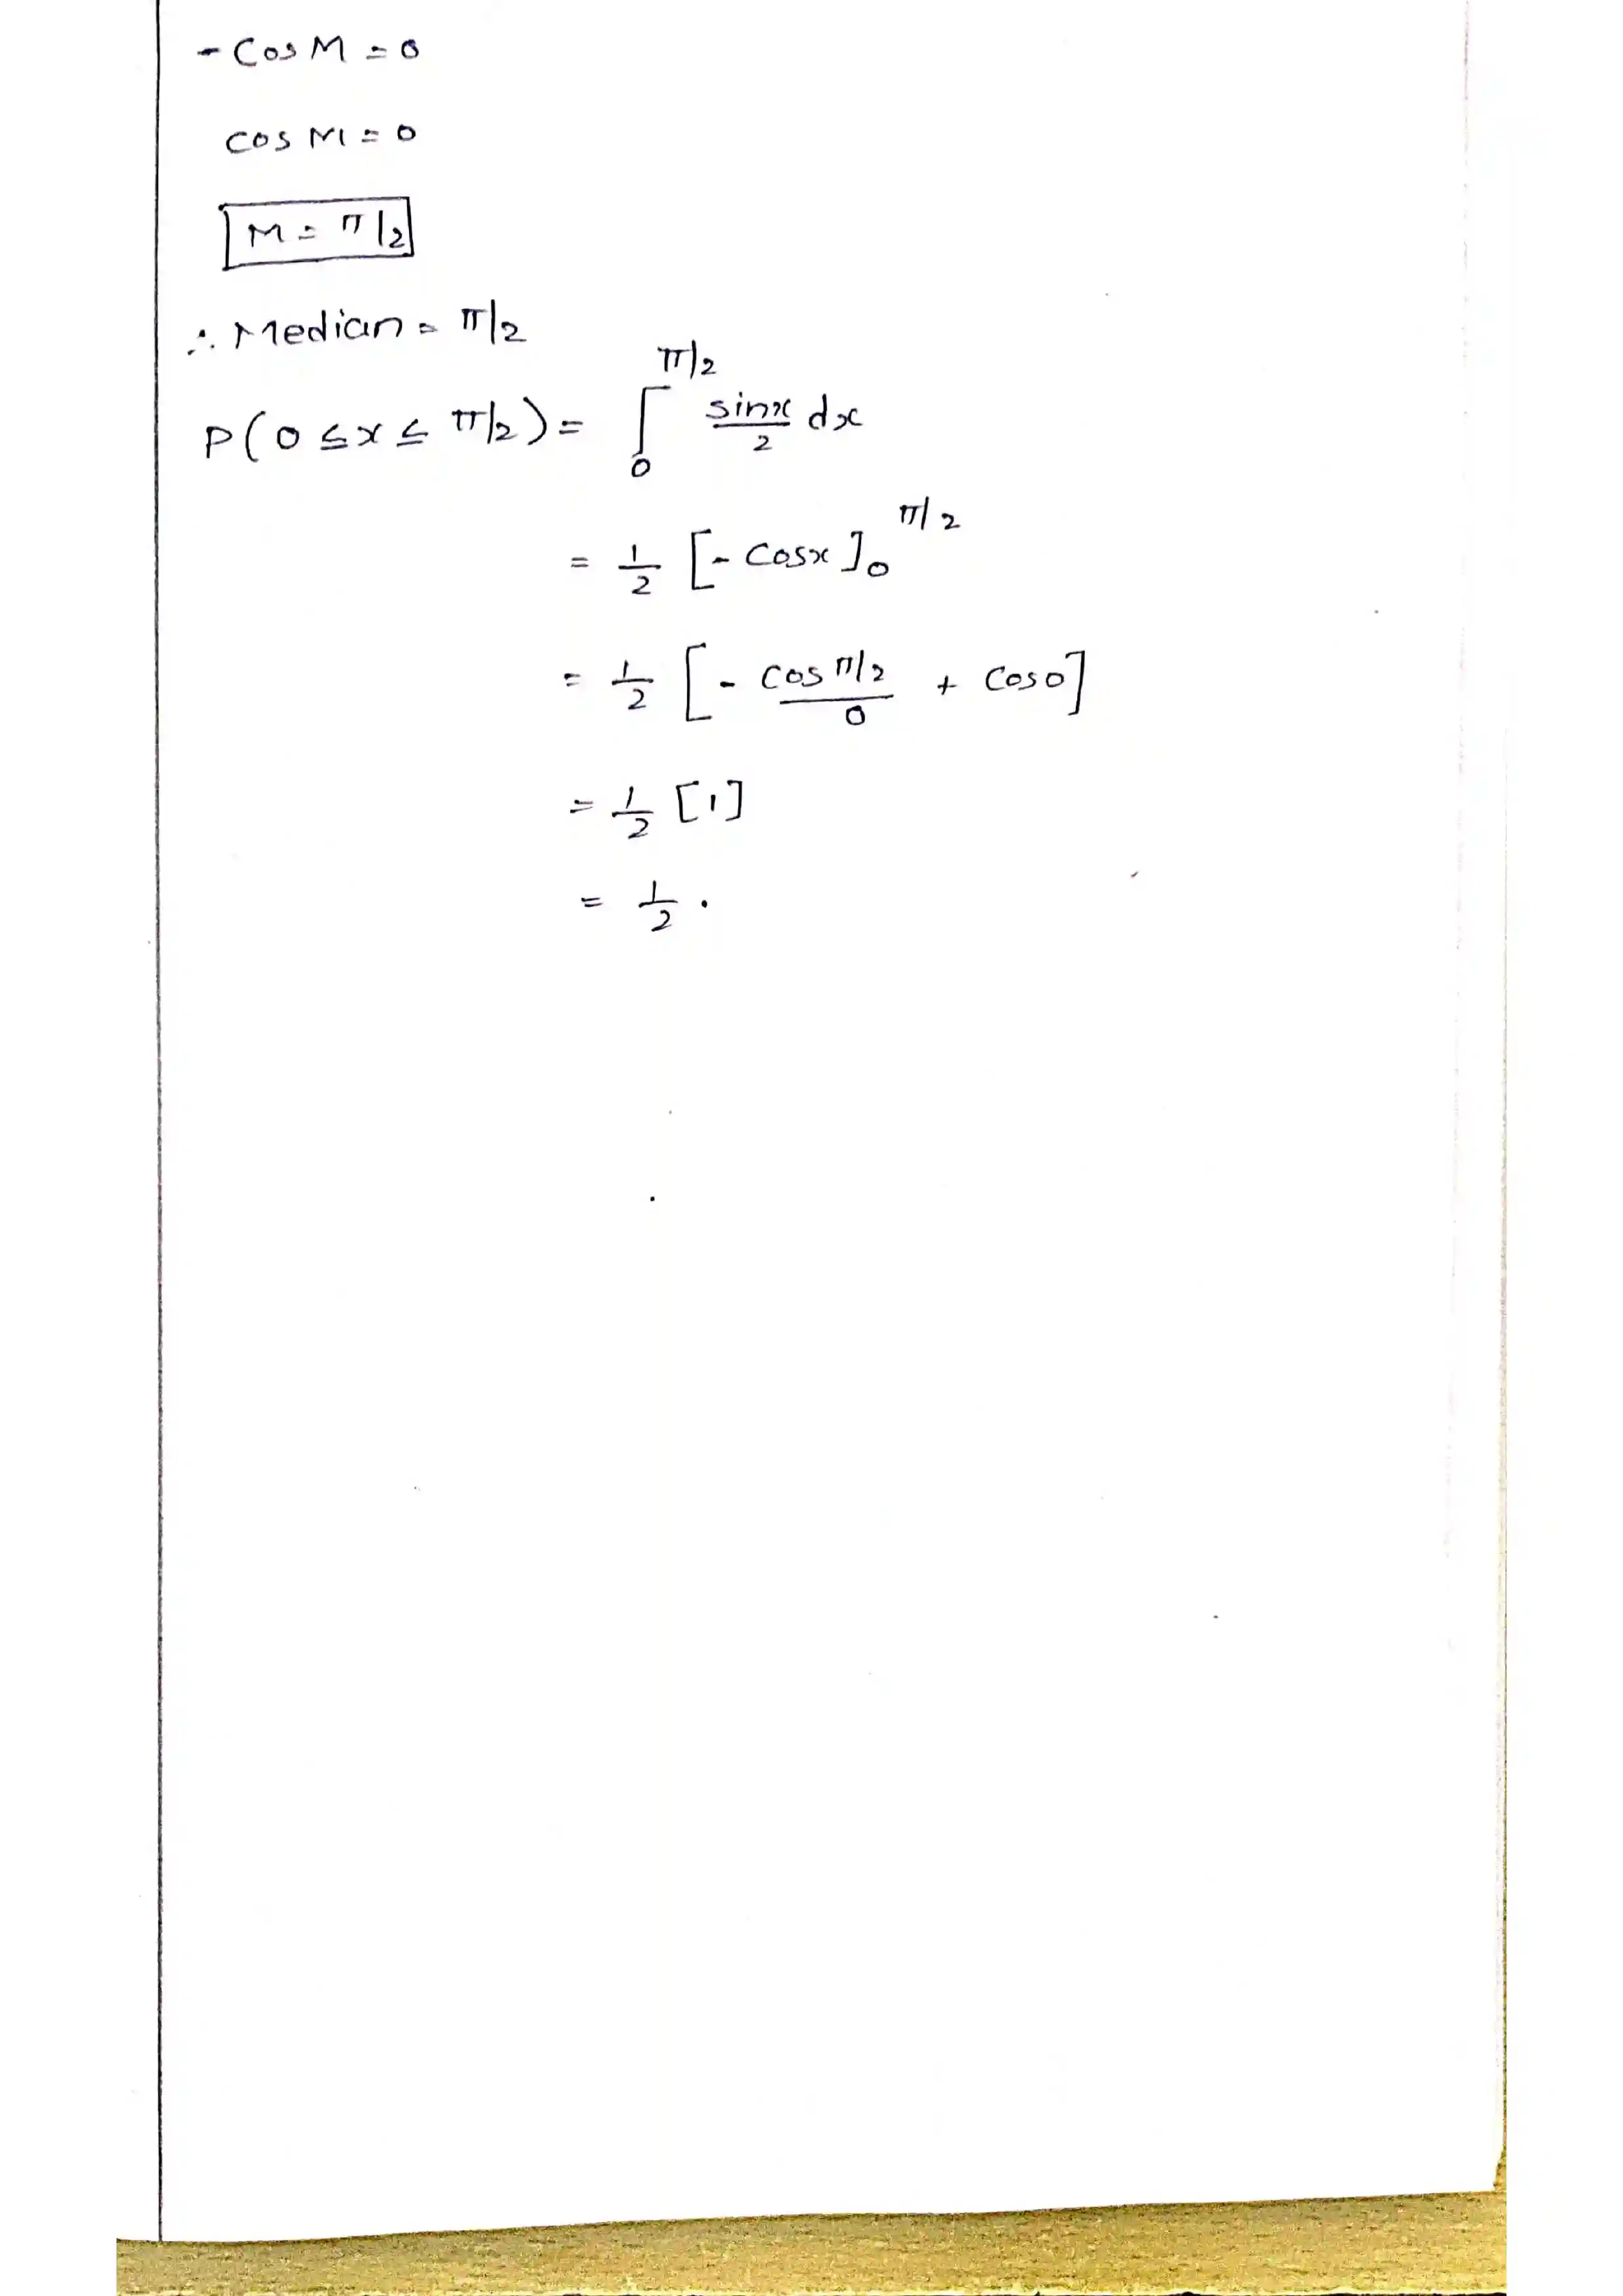 - Cos M = 0
cos M = 0
M = π/2
∴ Median = π/2
P(0 ≤ x ≤ π/2) = ∫₀^π/2 sinx/2 dx
= 1/2 [- cosx]₀^π/2
= 1/2 [- cos π/2 + cos 0]
0
= 1/2 [1]
= 1/2 .